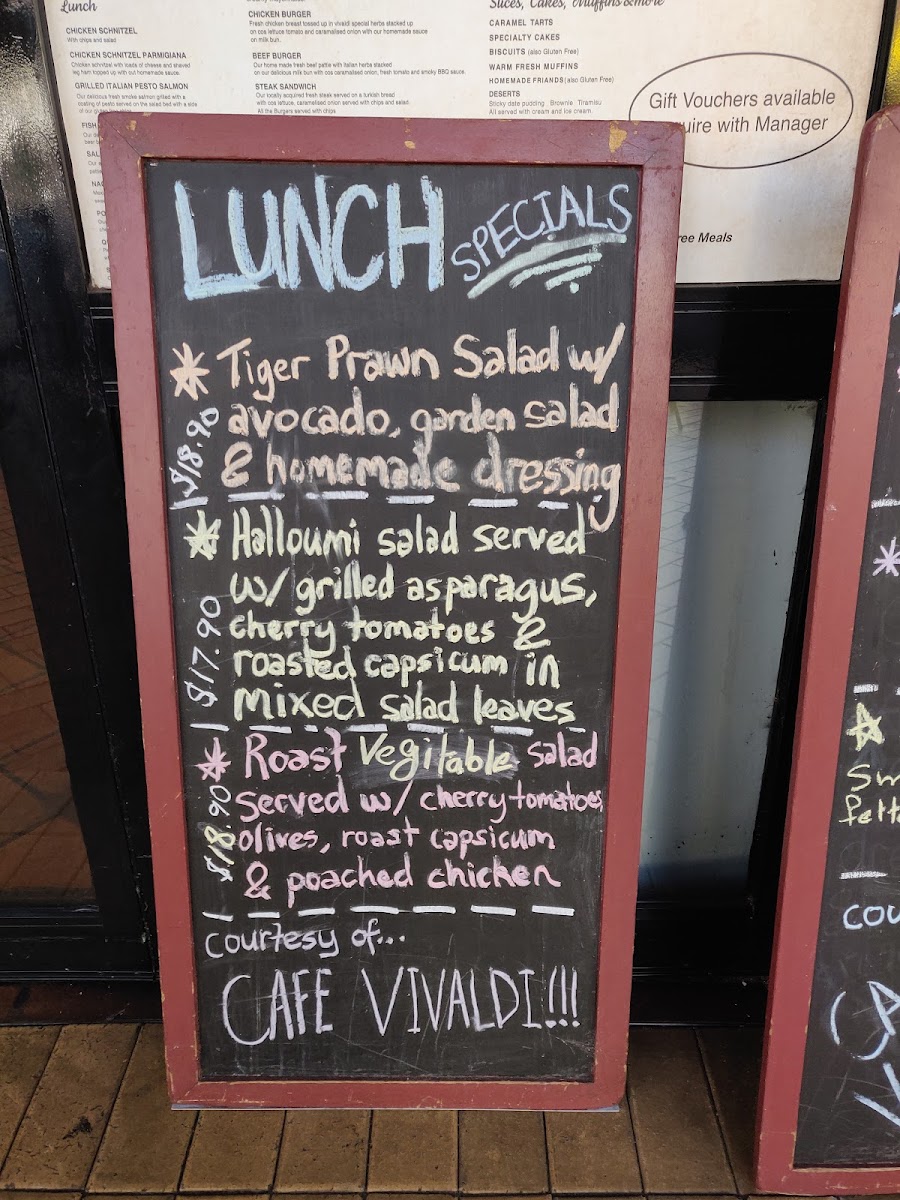 Lunch
CHICKEN SCHNITZEL
With chips and salad
CHICKEN SCHNITZEL PARMIGIANA
Chicken schnitzel with loads of cheese and shaved
leg ham topped up with out homemade sauce.
GRILLED ITALIAN PESTO SALMON
Our delicious fresh smoke salmon grilled with a
coating of pesto served on the salad bed with a side
CHICKEN BURGER
Fresh chicken breast tossed up in vivaldi special herbs stacked up
on cos lettuce tomato and caramelised onion with our homemade sauce
on milk bun.
BEEF BURGER
Our home made fresh beef pattie with italian herbs stacked
on our delicious milk bun with cos caramelised onion, fresh tomato and smoky BBQ sauce.
STEAK SANDWICH
Our locally acquired fresh steak served on a turkish bread
with cos lettuce, caramelised onion served with chips and salad.
All the Burgers served with chips
Slices, Cakes, Muffins & more
CARAMEL TARTS
SPECIALTY CAKES
BISCUITS (also Gluten Free)
WARM FRESH MUFFINS
HOMEMADE FRIANDS (also Gluten Free)
DESERTS
Sticky date pudding Brownie Tiramisu
All served with cream and ice cream.
Gift Vouchers available
uire with Manager
ree Meals
LUNCH SPECIALS
* Tiger Prawn Salad w/
avocado, garden salad
& homemade dressing
$18.90
* Halloumi salad served
w/ grilled asparagus,
cherry tomatoes &
roasted capsicum in
mixed salad leaves
$17.90
* Roast Vegitable salad
served w/ cherry tomatoes
olives, roast capsicum
& poached chicken
$18.90
courtesy of...
CAFE VIVALDI!!!
cou